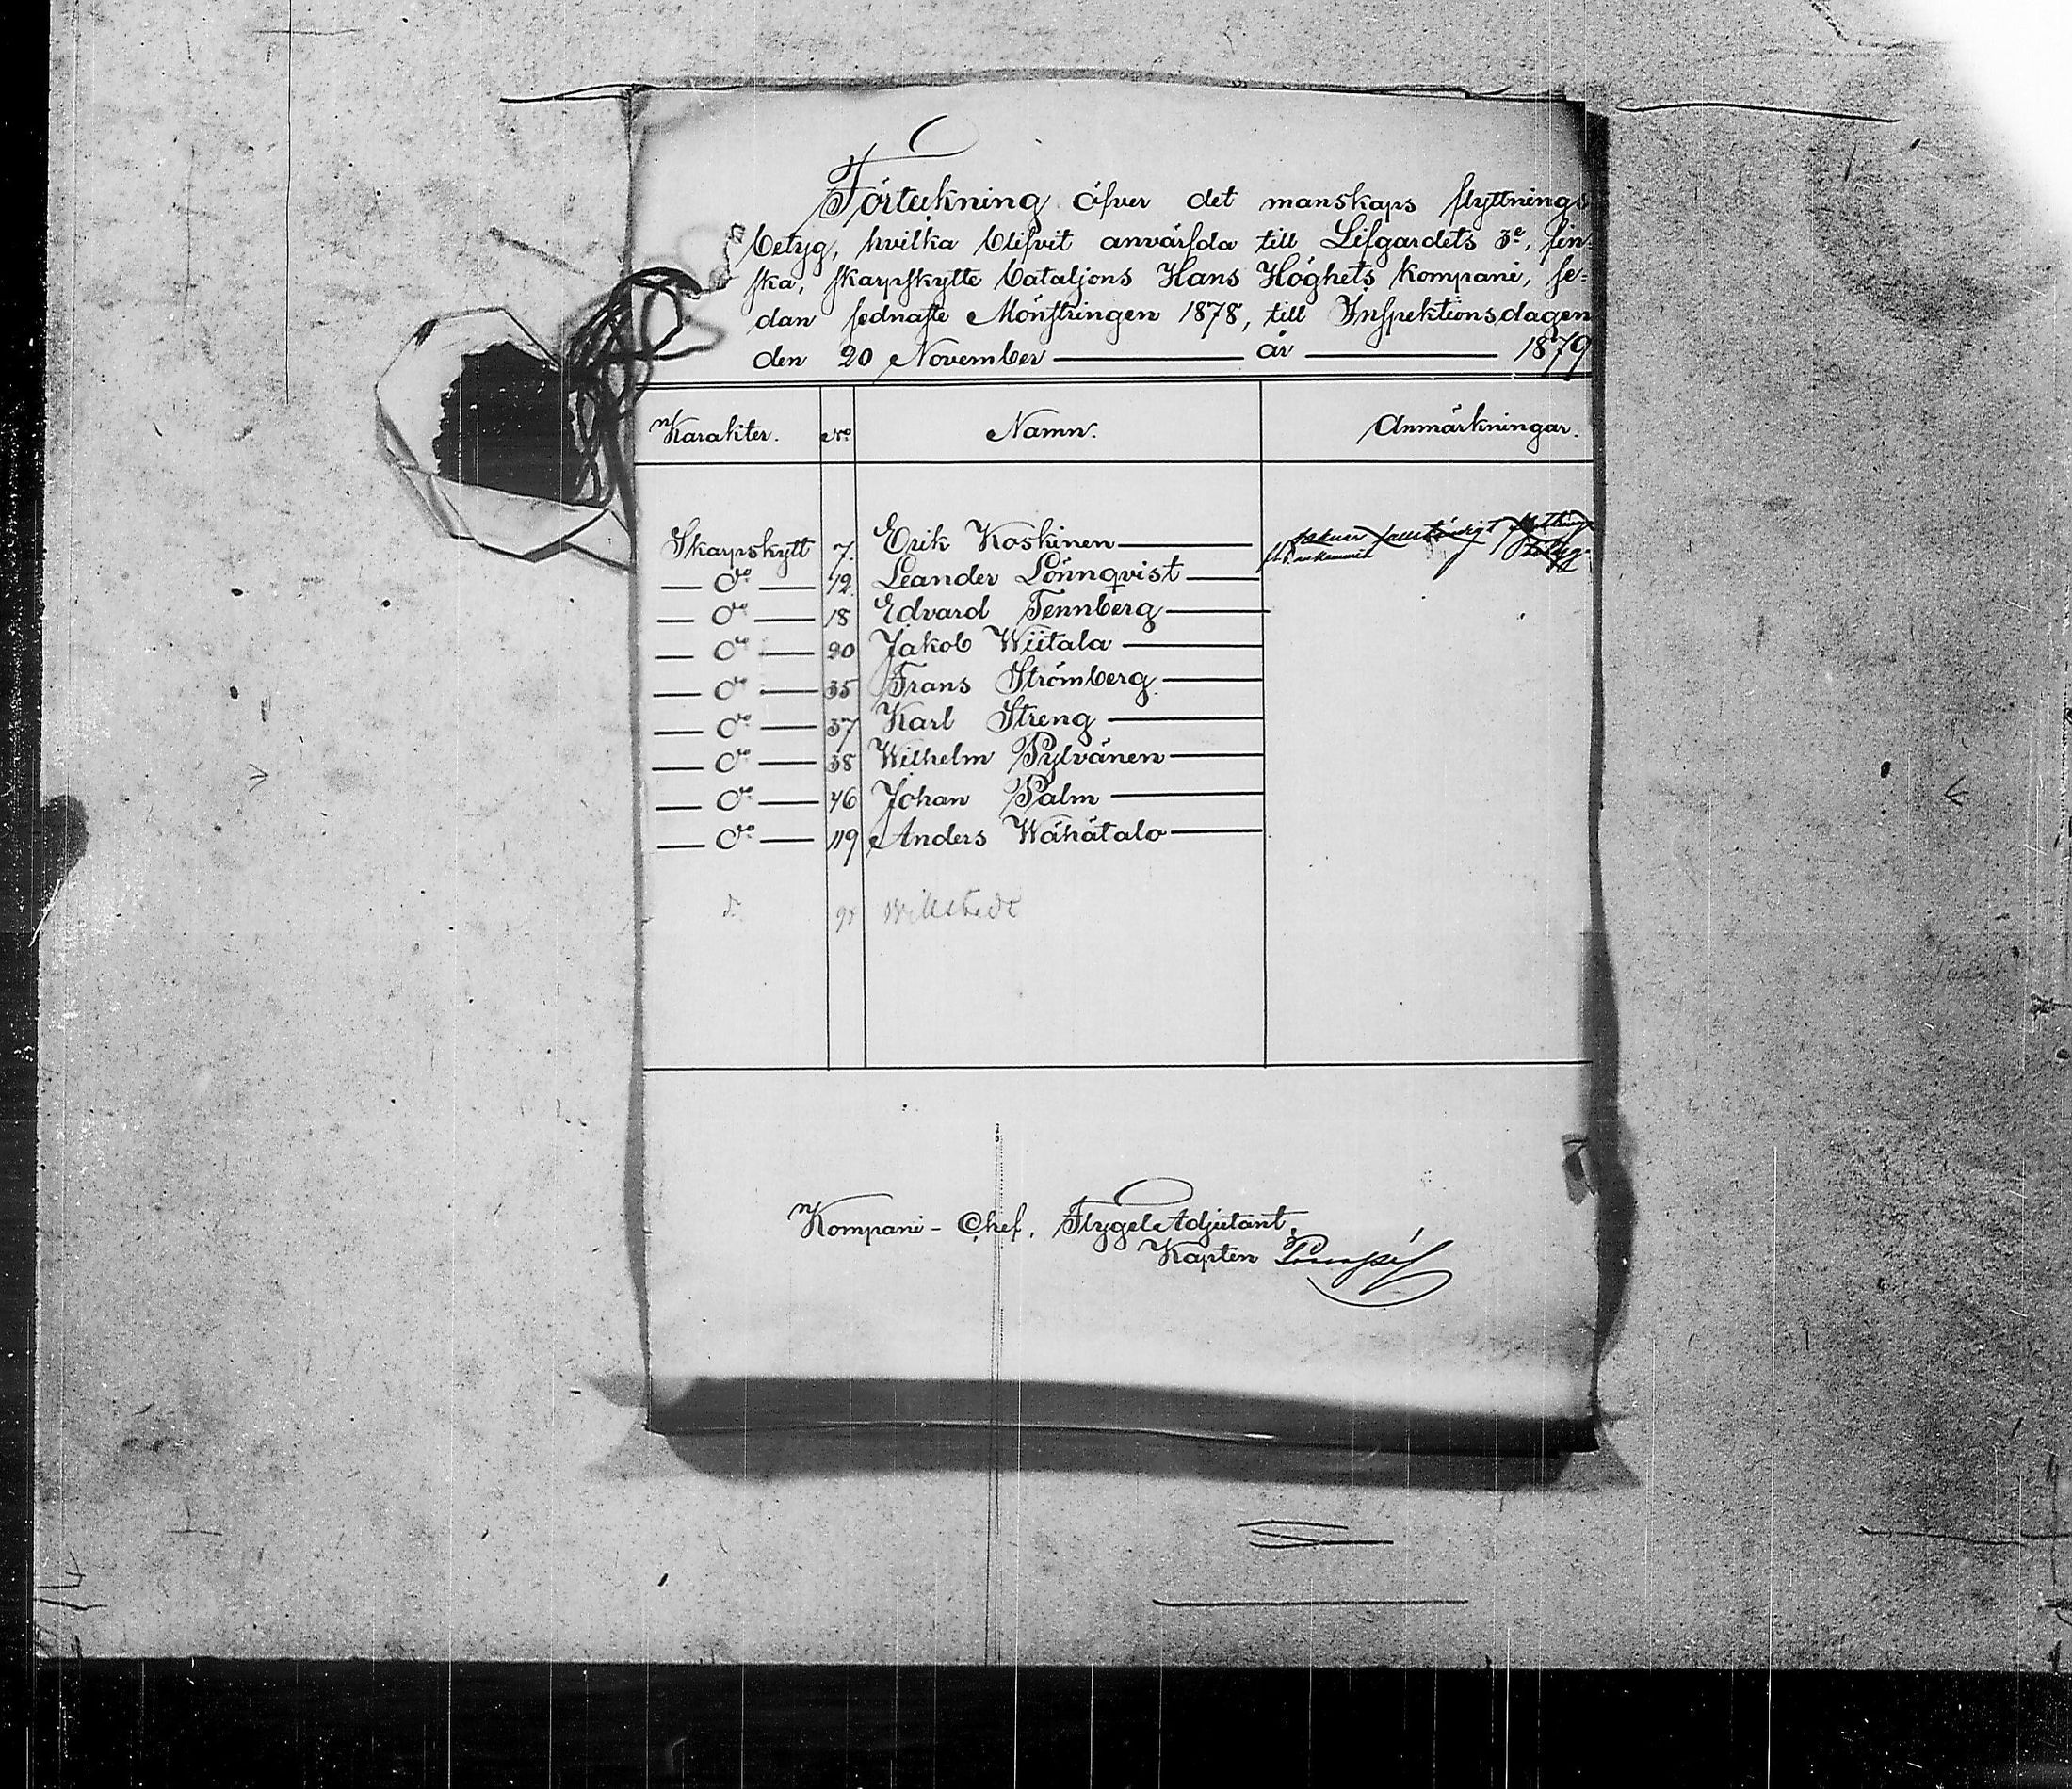 Förteckning öfver det manskaps flyttnings
betyg, hvilka blifvit anvärfda till Lifgardets 3e, fin-
ska, skarpskytte bataljons Hans Höghets kompani, se-
dan sednaste Mönstringen 1878, till Inspektionsdagen
den 20 November år 1879
Karakter. No Namn. Anmärkningar.
Skarpskytt 7. Erik Koskinen saknar flyttnings
do 12. Leander Lönnqvist betyg.
do 18 Edvard Tennberg
do 20 Jakob Wiitala
do 35 Frans Strömberg
do 37 Karl Streng
do 38 Wilhelm Pylvänen
do 46 Johan Palm
do 119 Anders Wähätalo
do Willstedt
Kompani-Chef, Flygel Adjutant,
Kapten